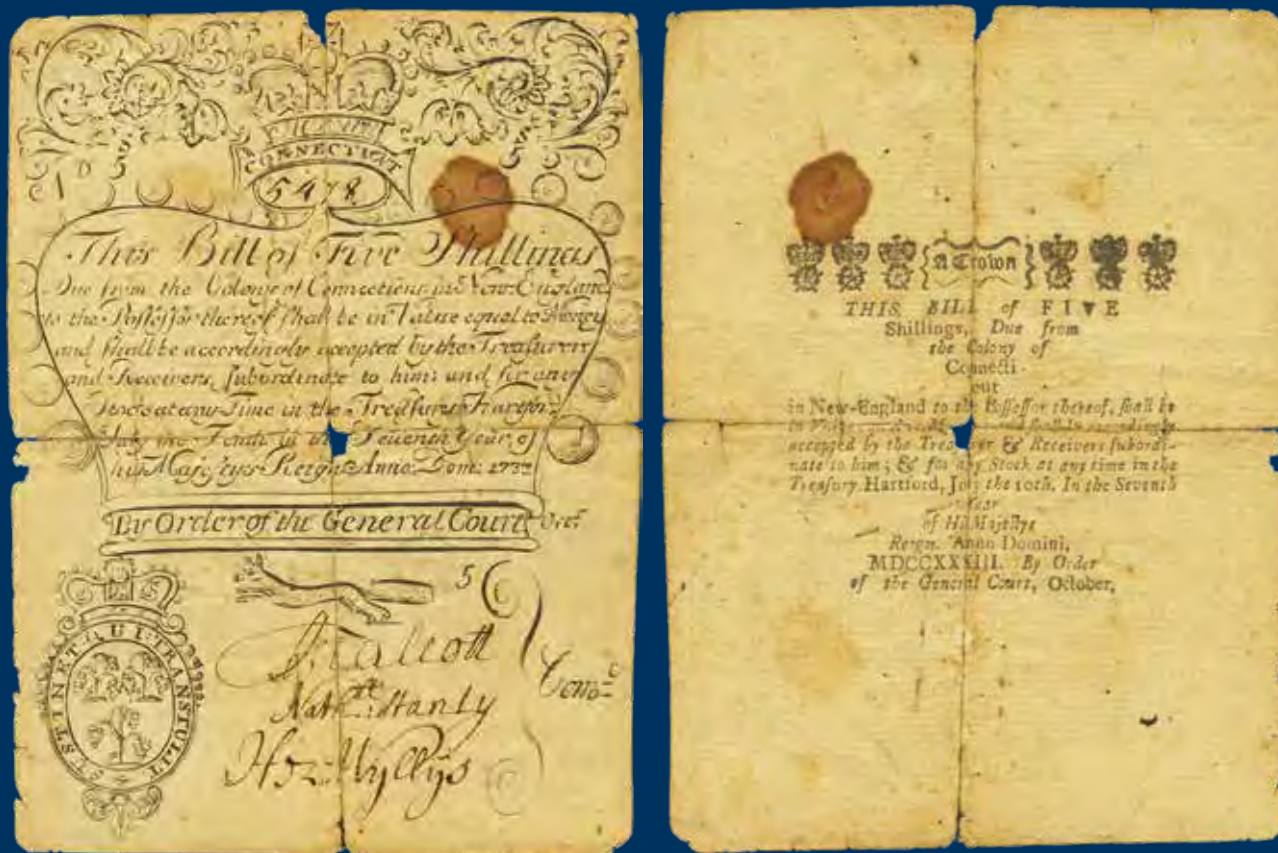 CONNECTICUT
5478
This Bill of Five Shillings
Due from the Colony of Connecticut in New England
to the Possessor thereof shall be in Value equal to Money
and shall be accordingly accepted by the Treasurer
and Receivers subordinate to him and for any
Stock at any Time in the Treasury Hartford
July the Tenth in the Seventh Year of
his Majestys Reign Anno Dom: 1733
By Order of the General Court Oct:
5
J Talcott
Nath:ll Stanly
Hez: Wyllys
Com:
SUSTINET QUI TRANSTULIT
A Crown
THIS BILL of FIVE
Shillings, Due from
the Colony of
Connecti-
cut
in New-England to the Possessor thereof, shall be
in and shall be accordingly
accepted by the Treasurer & Receivers subordi-
nate to him; & for any Stock at any time in the
Treasury. Hartford, July the 10th. In the Seventh
Year
of His Majestys
Reign. Anno Domini,
MDCCXXXIII. By Order
of the General Court, October,